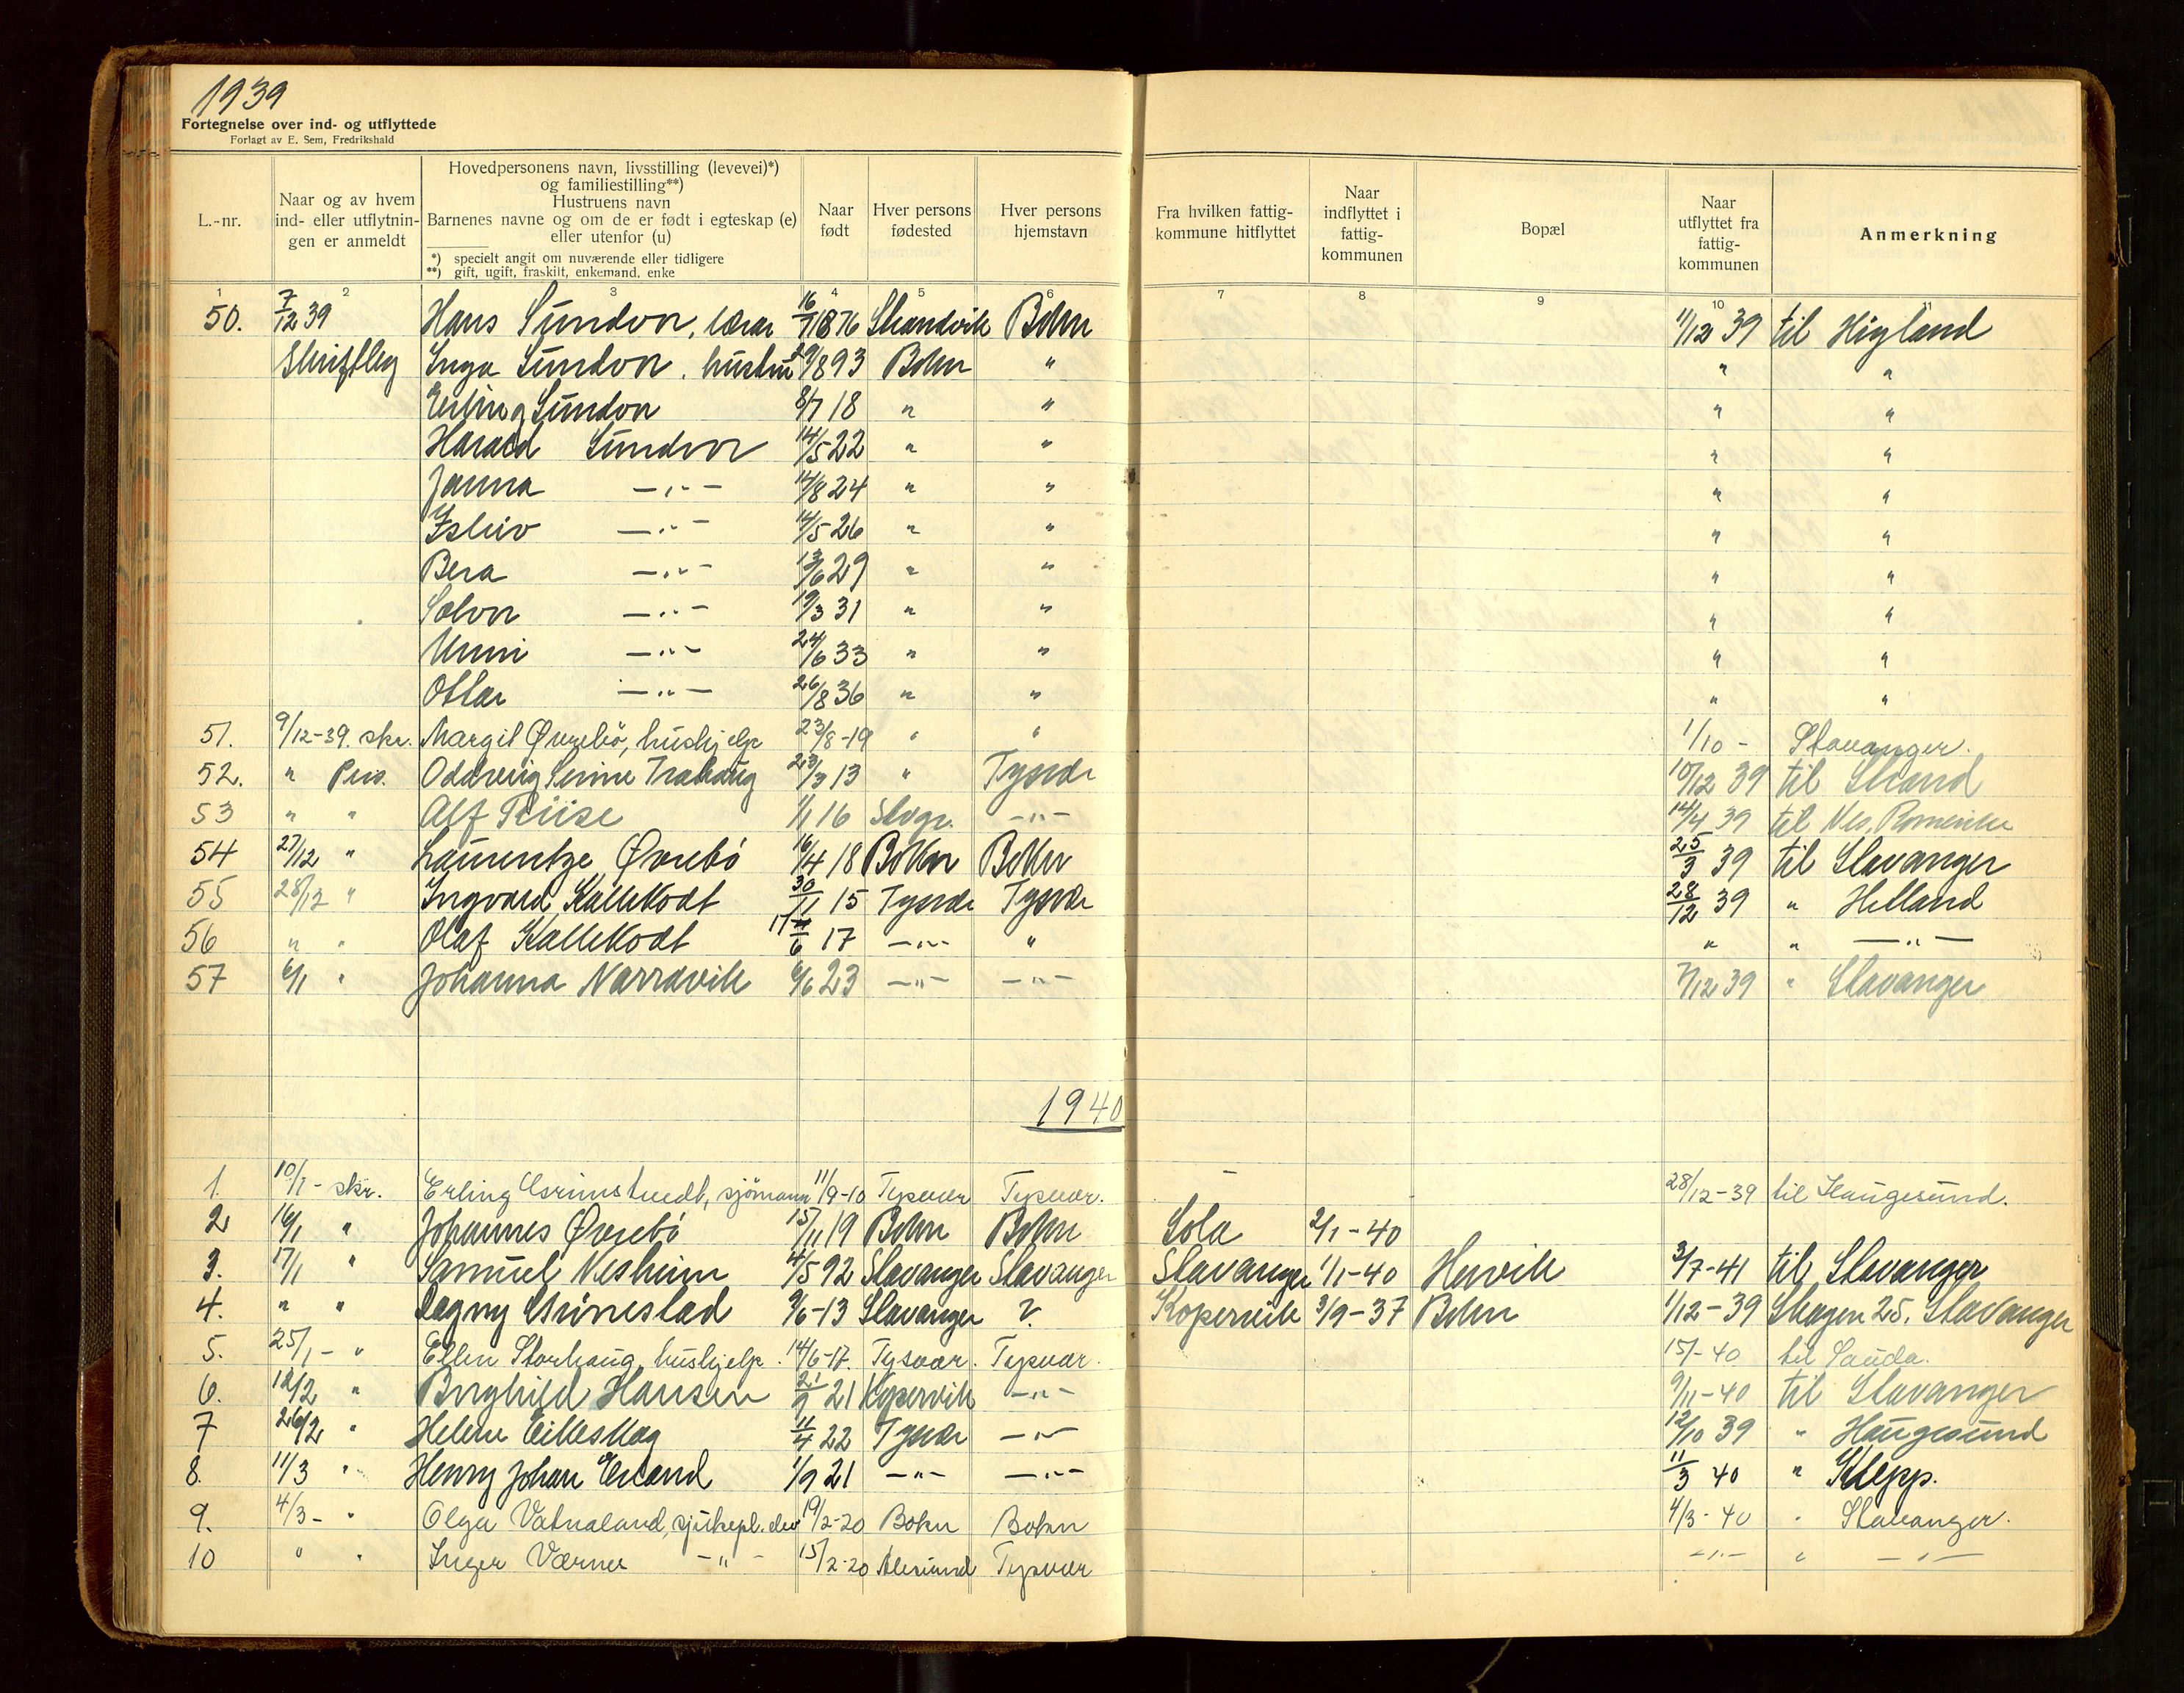 1939
Fortegnelse over ind- og utflyttede
Forlagt av E. Sem, Fredrikshald
L.-nr.
Naar og av hvem ind- eller utflytnin- gen er anmeldt
Hovedpersonens navn, livsstilling (levevei)*)
og familiestilling**)
Hustruens navn
Barnenes navne og om de er født i egteskap (e)
eller utenfor (u)
*) specielt angit om nuværende eller tidligere
**) gift, ugift, fraskilt, enkemand, enke
Naar født
Hver persons fødested
Hver persons hjemstavn
Fra hvilken fattig- kommune hitflyttet
Naar indflyttet i fattig- kommunen
Bopæl
Naar utflyttet fra fattig- kommunen
Anmerkning
1 2 3 4 5 6 7 8 9 10 11
50. 7/12 39 Hans Sundvor, lærar 16/7 1876 Strandvik Bokn 11/12 39 til Høgland
Skriftleg Inga Sundvor, hustru 29/8 93 Bokn " " "
Erling Sundvor 8/7 18 " " " "
Harald Sundvor 14/5 22 " " " "
Janna — " — 14/8 24 " " " "
— " — 14/5 26 " " " "
Bera — " — 13/6 29 " " " "
Solvor — " — 19/3 31 " " " "
Unni — " — 24/6 33 " " " "
Ottar — " — 26/8 36 " " " "
51. 9/12-39. skr. Margit Øvrebö, hushjelp 23/8-19 " " 1/10 - Stavanger.
52. " Pers. Oddveig 23/3 13 " Tysvær 10/12 39 til Strand
53 " " Alf Friise 1/1 16 Stvgr. — " — 14/4 39 til Nes, Romerike
54 27/12 " Laurentze Øvrebö 16/4 18 Bokn Bokn 25/3 39 til Stavanger
55 28/12 " Ingvard Kallekodt 30/11 15 Tysvær Tysvær 28/12 39 " Helland
56 " " Olaf Kallekodt 17/6 17 — " — " " " — " —
57 6/1 " Johanna Narravik 6/6 23 — " — — " — 7/12 39 " Stavanger
1940
1. 10/1 - skr. Erling sjömann 11/9-10 Tysvær Tysvær. 28/12-39 til Haugesund.
2. 16/1 " Johannes Øvrebö 15/11 19 Bokn Bokn Sola 2/1-40
3. 17/1 " Samuel Nesheim 4/5 92 Stavanger Stavanger Stavanger 1/1-40 Hervik 3/7-41 til Stavanger
4. " " Dagny 9/6-13 Stavanger ?. Kopervik 3/9-37 Bokn 1/12-39 Skagen 25. Stavanger
5. 25/1 - " Ellen Storhaug, hushjelp. 14/6-17. Tysvær. Tysvær. 15/1-40 til Sauda.
6. 12/2 " Borghild Hansen 21/9 21 Kopervik — " — 9/11-40 til Stavanger
7 26/2 " Helene Eikeskog 11/4 22 Tysvær — " — 12/10 39 " Haugesund
8. 11/3 " Henry Johan Erland 1/9 21 — " — — " — 11/3 40 " Klepp.
9. 4/3 - " Olga Vatnaland, sjukepl. elev 19/2-20 Bokn Bokn 4/3-40 " Stavanger.
10 " " Inger Værnes — " — 15/2-20 Ålesund Tysvær — " — " — " —